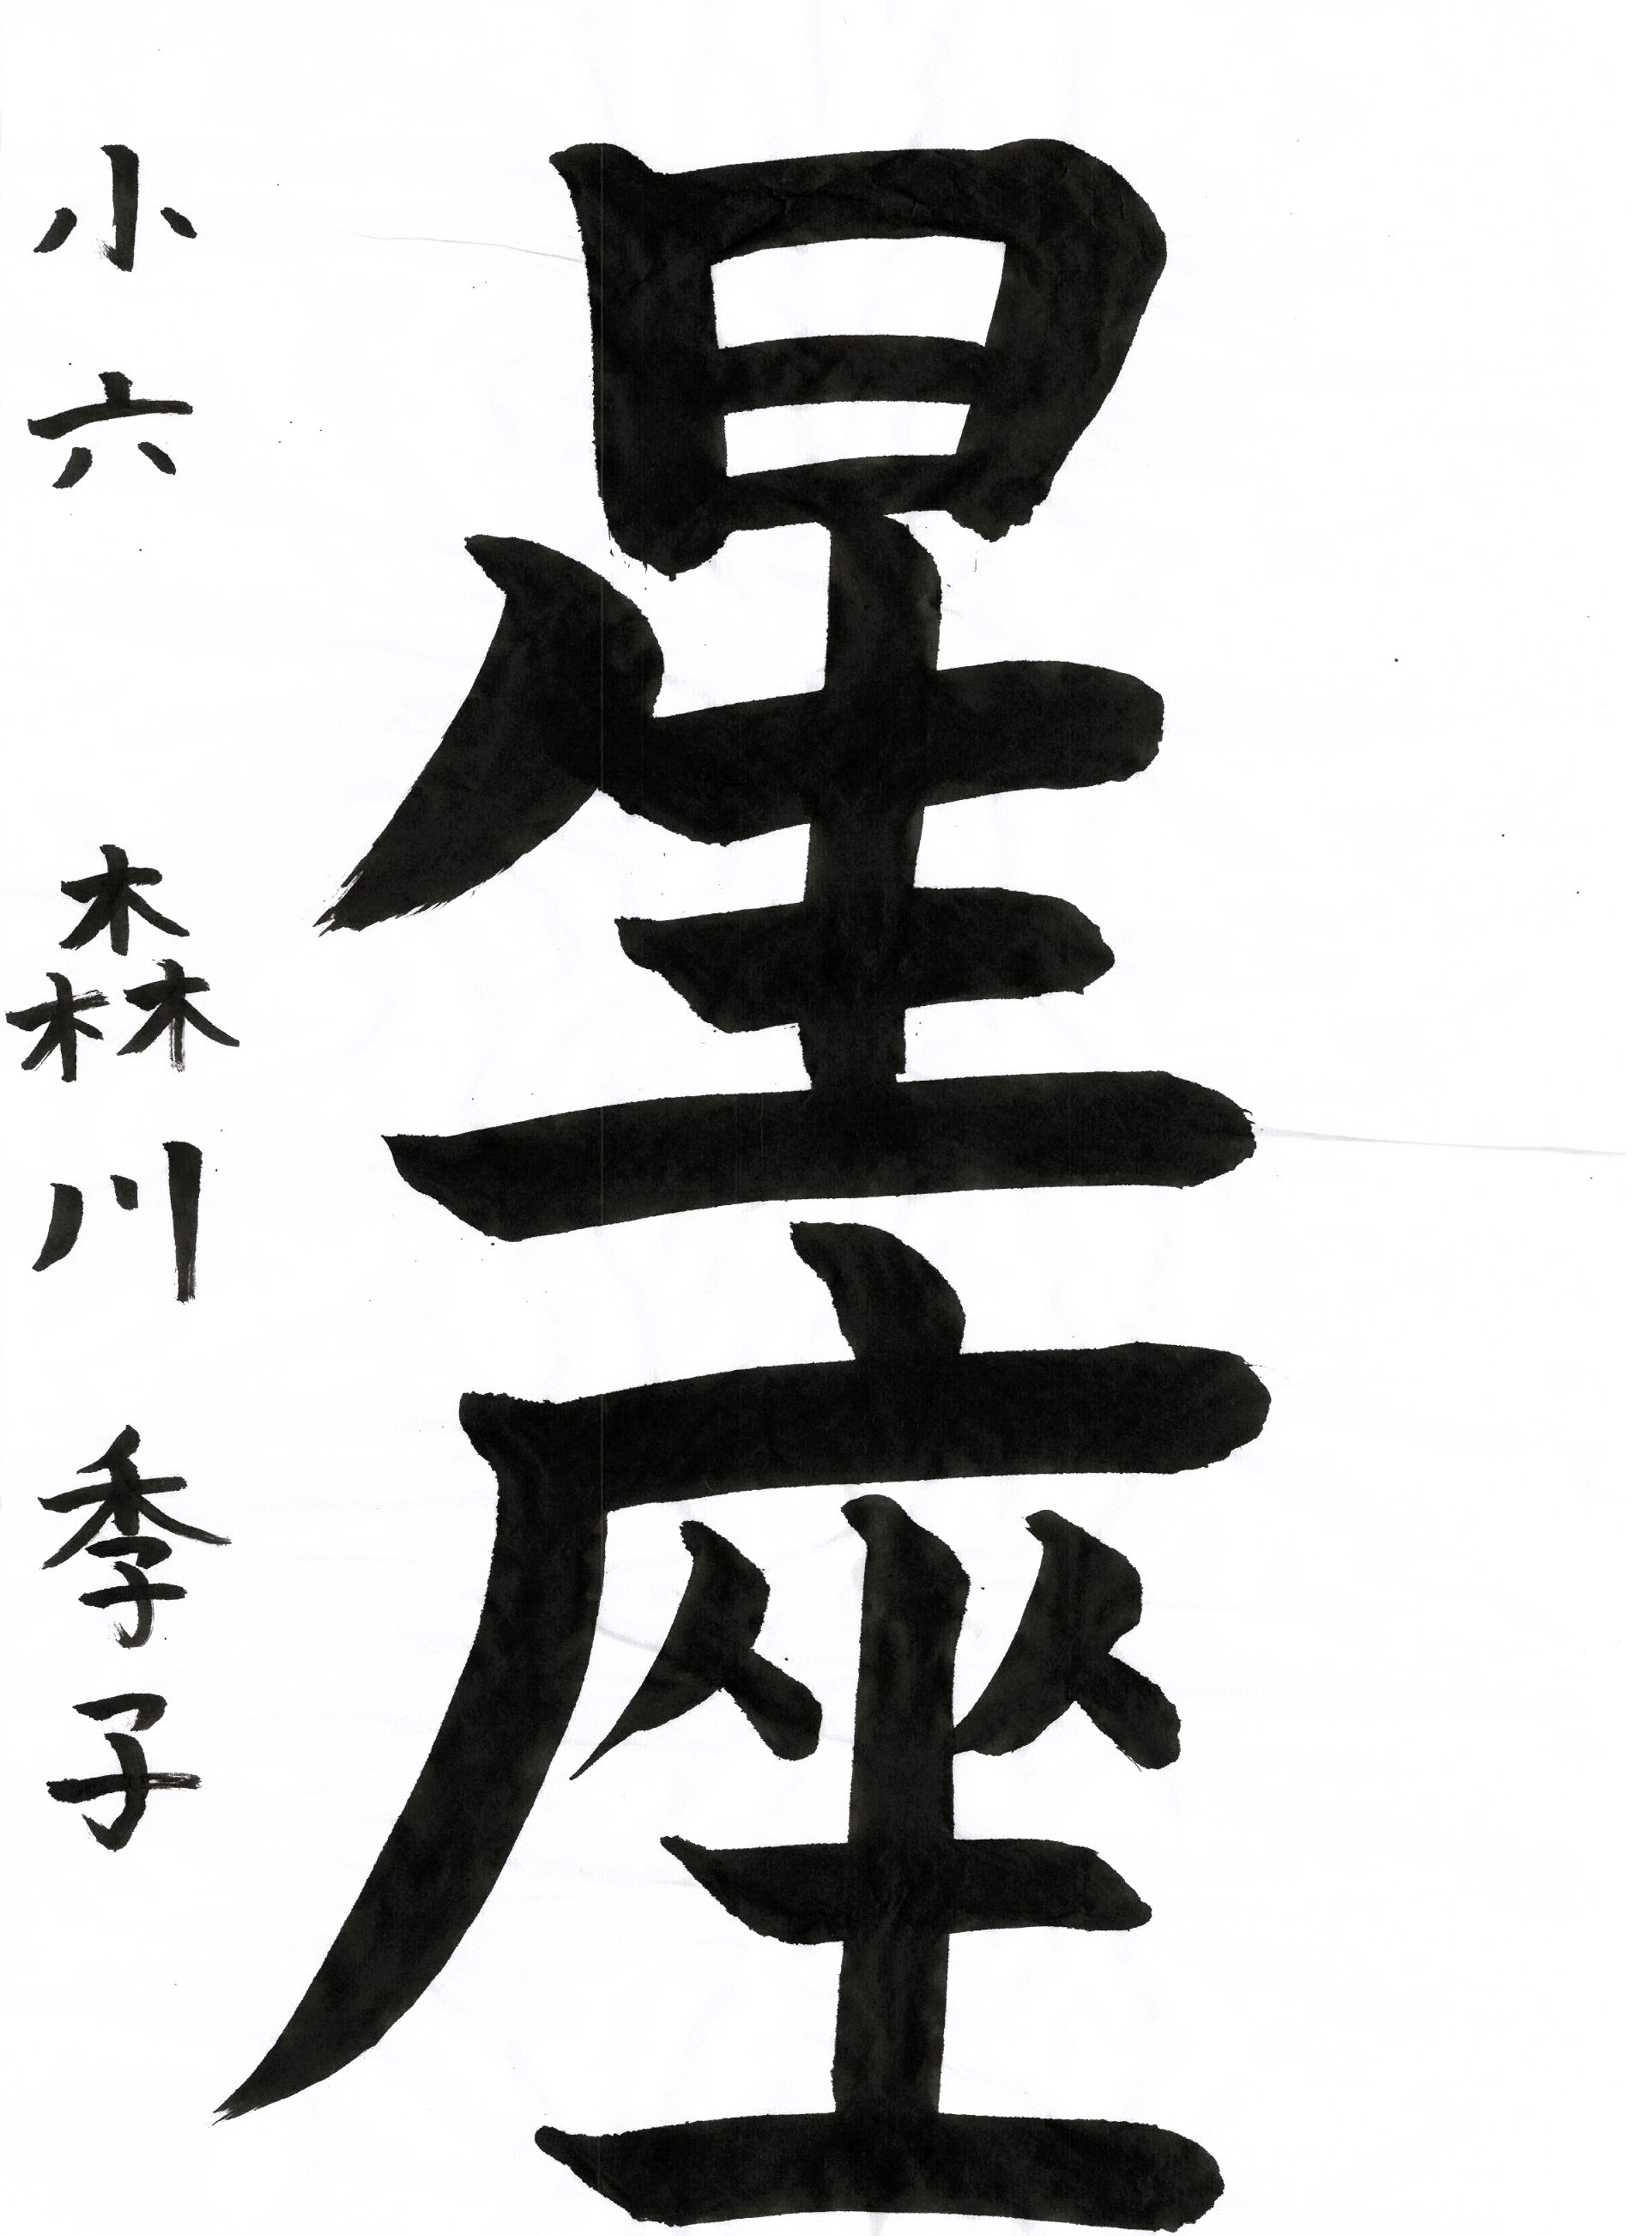 星座
小六 森川季子